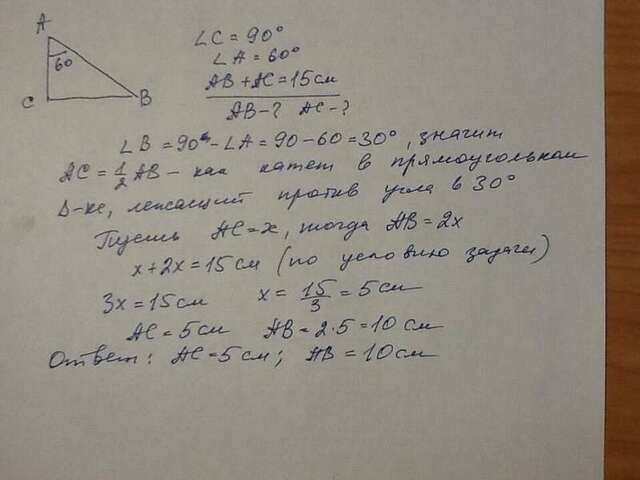 A
60
C
B
∠C = 90°
∠A = 60°
AB + AC = 15 см
AB - ? AC - ?
∠B = 90° - ∠A = 90 - 60 = 30°, значит
AC = 1/2 AB - как катет в прямоугольном
Δ-ке, лежащий против угла в 30°
Пусть AC = x, тогда AB = 2x
x + 2x = 15 см (по условию задачи)
3x = 15 см x = 15/3 = 5 см
AC = 5 см AB = 2·5 = 10 см
Ответ: AC = 5 см; AB = 10 см